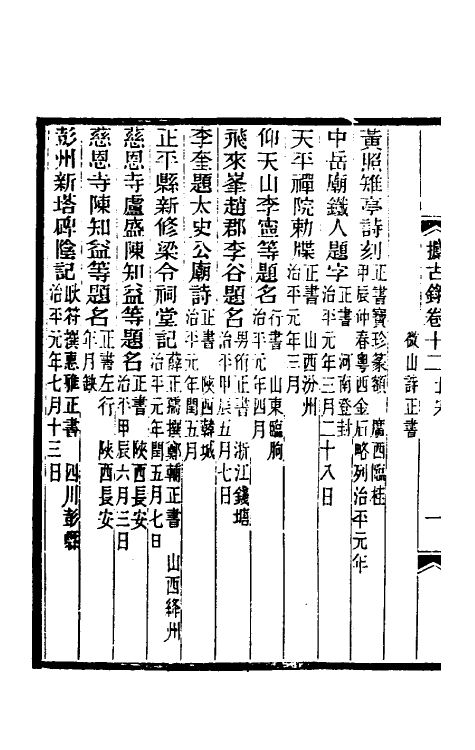 攈古錄卷十二 北宋 一
黃照雉亭詩刻 正書寶珍篆額 廣西臨桂
甲辰仲春粵西金石略列治平元年
中岳廟鐵人題字 正書 河南登封
治平元年三月二十八日
天平禪院勅牒 正書 山西汾州
治平元年三月
仰天山李憲等題名 行書 山東臨朐
治平元年四月
飛來峯趙郡李谷題名 男術正書 浙江錢塘
治平甲辰五月七日
李奎題太史公廟詩 正書 陝西韓城
治平元年閏五月
正平縣新修梁令祠堂記 薛正孺撰鄭輔正書 山西絳州
治平元年閏五月七日
慈恩寺盧盛陳知益等題名 正書 陝西長安
治平甲辰六月三日
慈恩寺陳知益等題名 正書左行 陝西長安
年月缺
彭州新塔碑陰記 耿符撰惠雅正書 四川彭縣
治平元年七月十三日